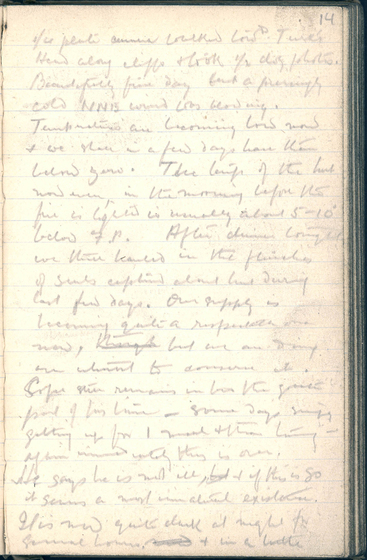 14
1/4 plate camera walked towds Tunk
Head along cliffs & took 1/2 doz photos.
Beautifully fine day but a piercingly
cold NNE wind was blowing.
Temperatures are becoming low now
& we shall in a few days have them
below zero. The temp of the hut
now even in the morning before the
fire is lighted is usually about 5-10°
below F.P. After dinner tonight
we three hauled in the flenches
of seals captured about hut during
last few days. Our supply is
becoming quite a respectable one
now, but we are doing
our utmost to conserve it.
Cope still remains in bed the greater
part of his time — some days simply
getting up for 1 meal & then turning
again immediately this is over.
He says he is not ill, & if this is so
it seems a most unnatural existence.
It is now quite dark at night for
several hours & in a little